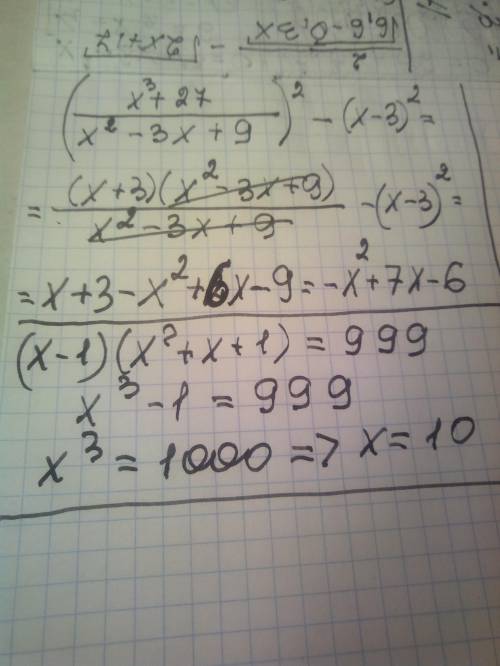 ((x³ + 27)/(x² - 3x + 9))² - (x-3)² =
= ((x+3)(x² - 3x + 9))/(x² - 3x + 9) - (x-3)² =
= x + 3 - x² + 6x - 9 = -x² + 7x - 6
(x-1)(x² + x + 1) = 999
x³ - 1 = 999
x³ = 1000 => x = 10